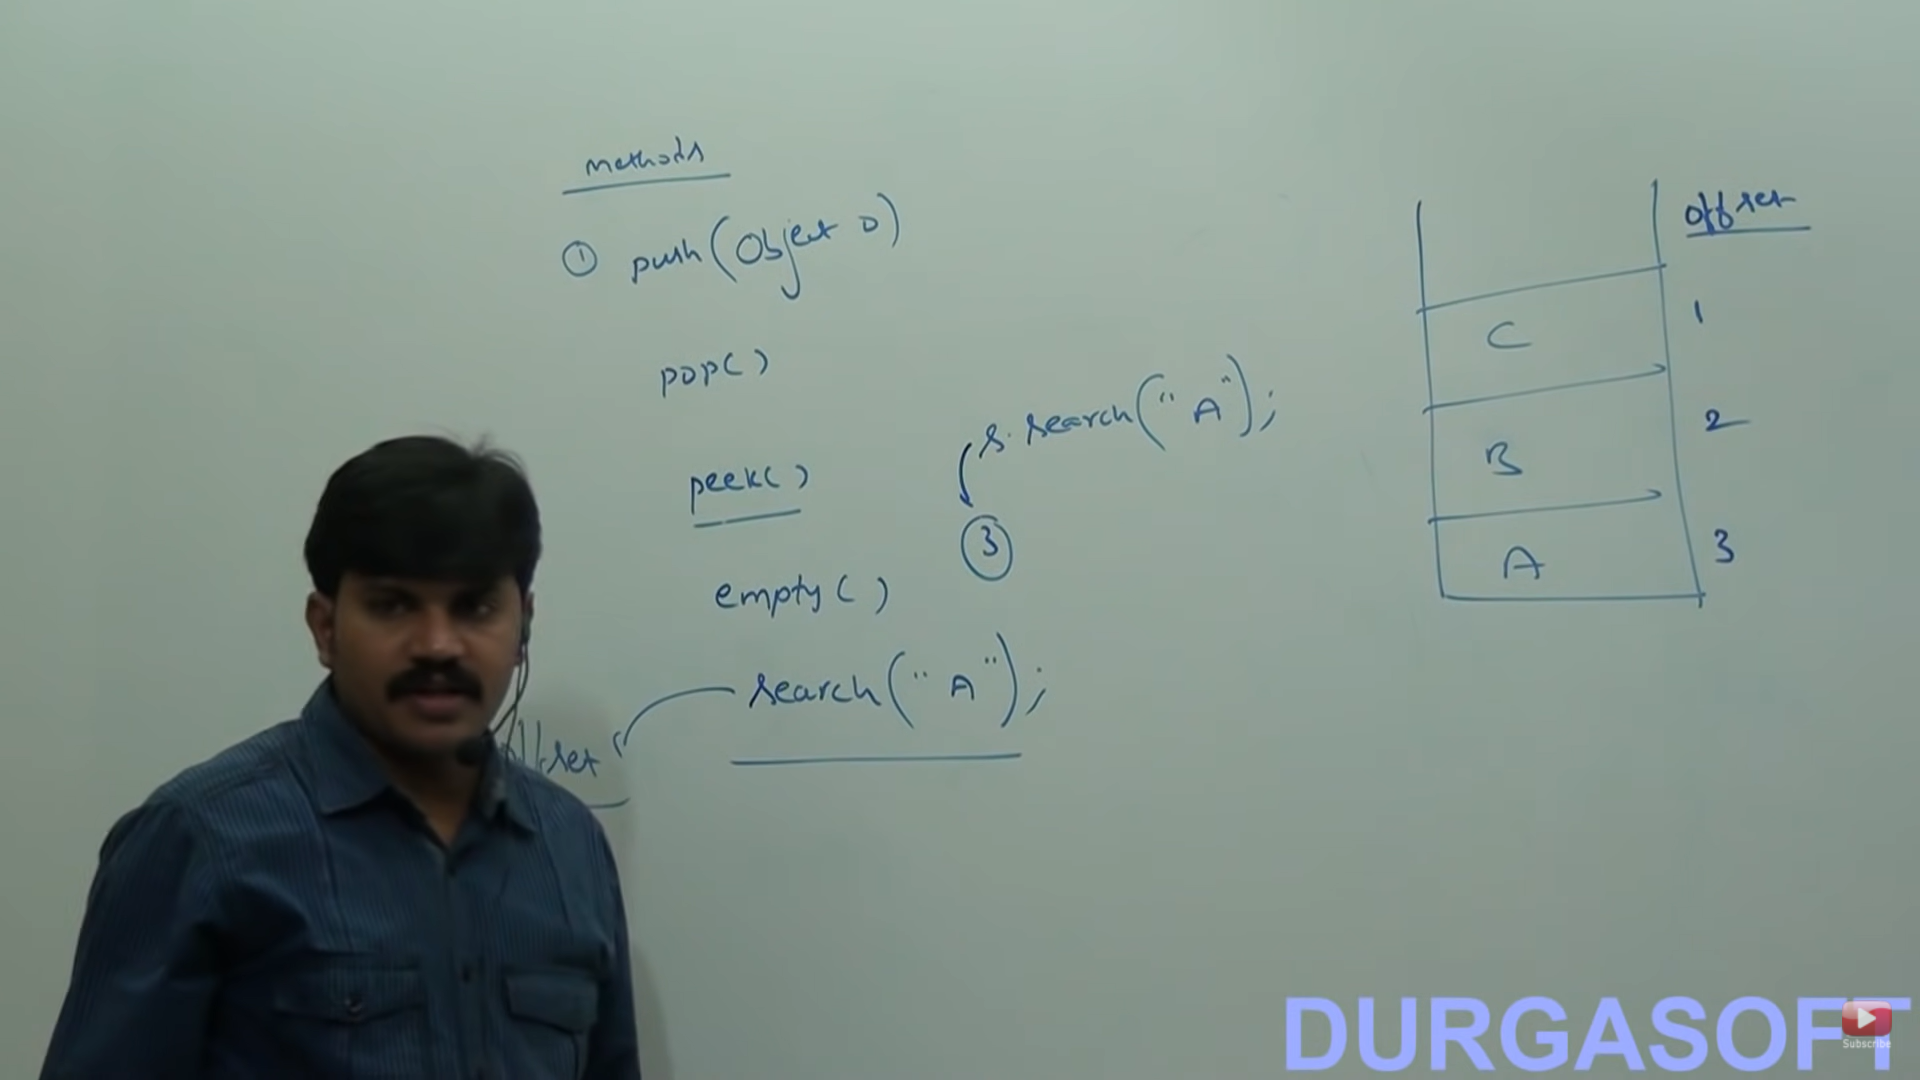 methods
① push(Object o)
pop()
peek()
empty()
search("A");
offset
s.search("A");
3
offset
C 1
B 2
A 3
DURGASOFT
Subscribe